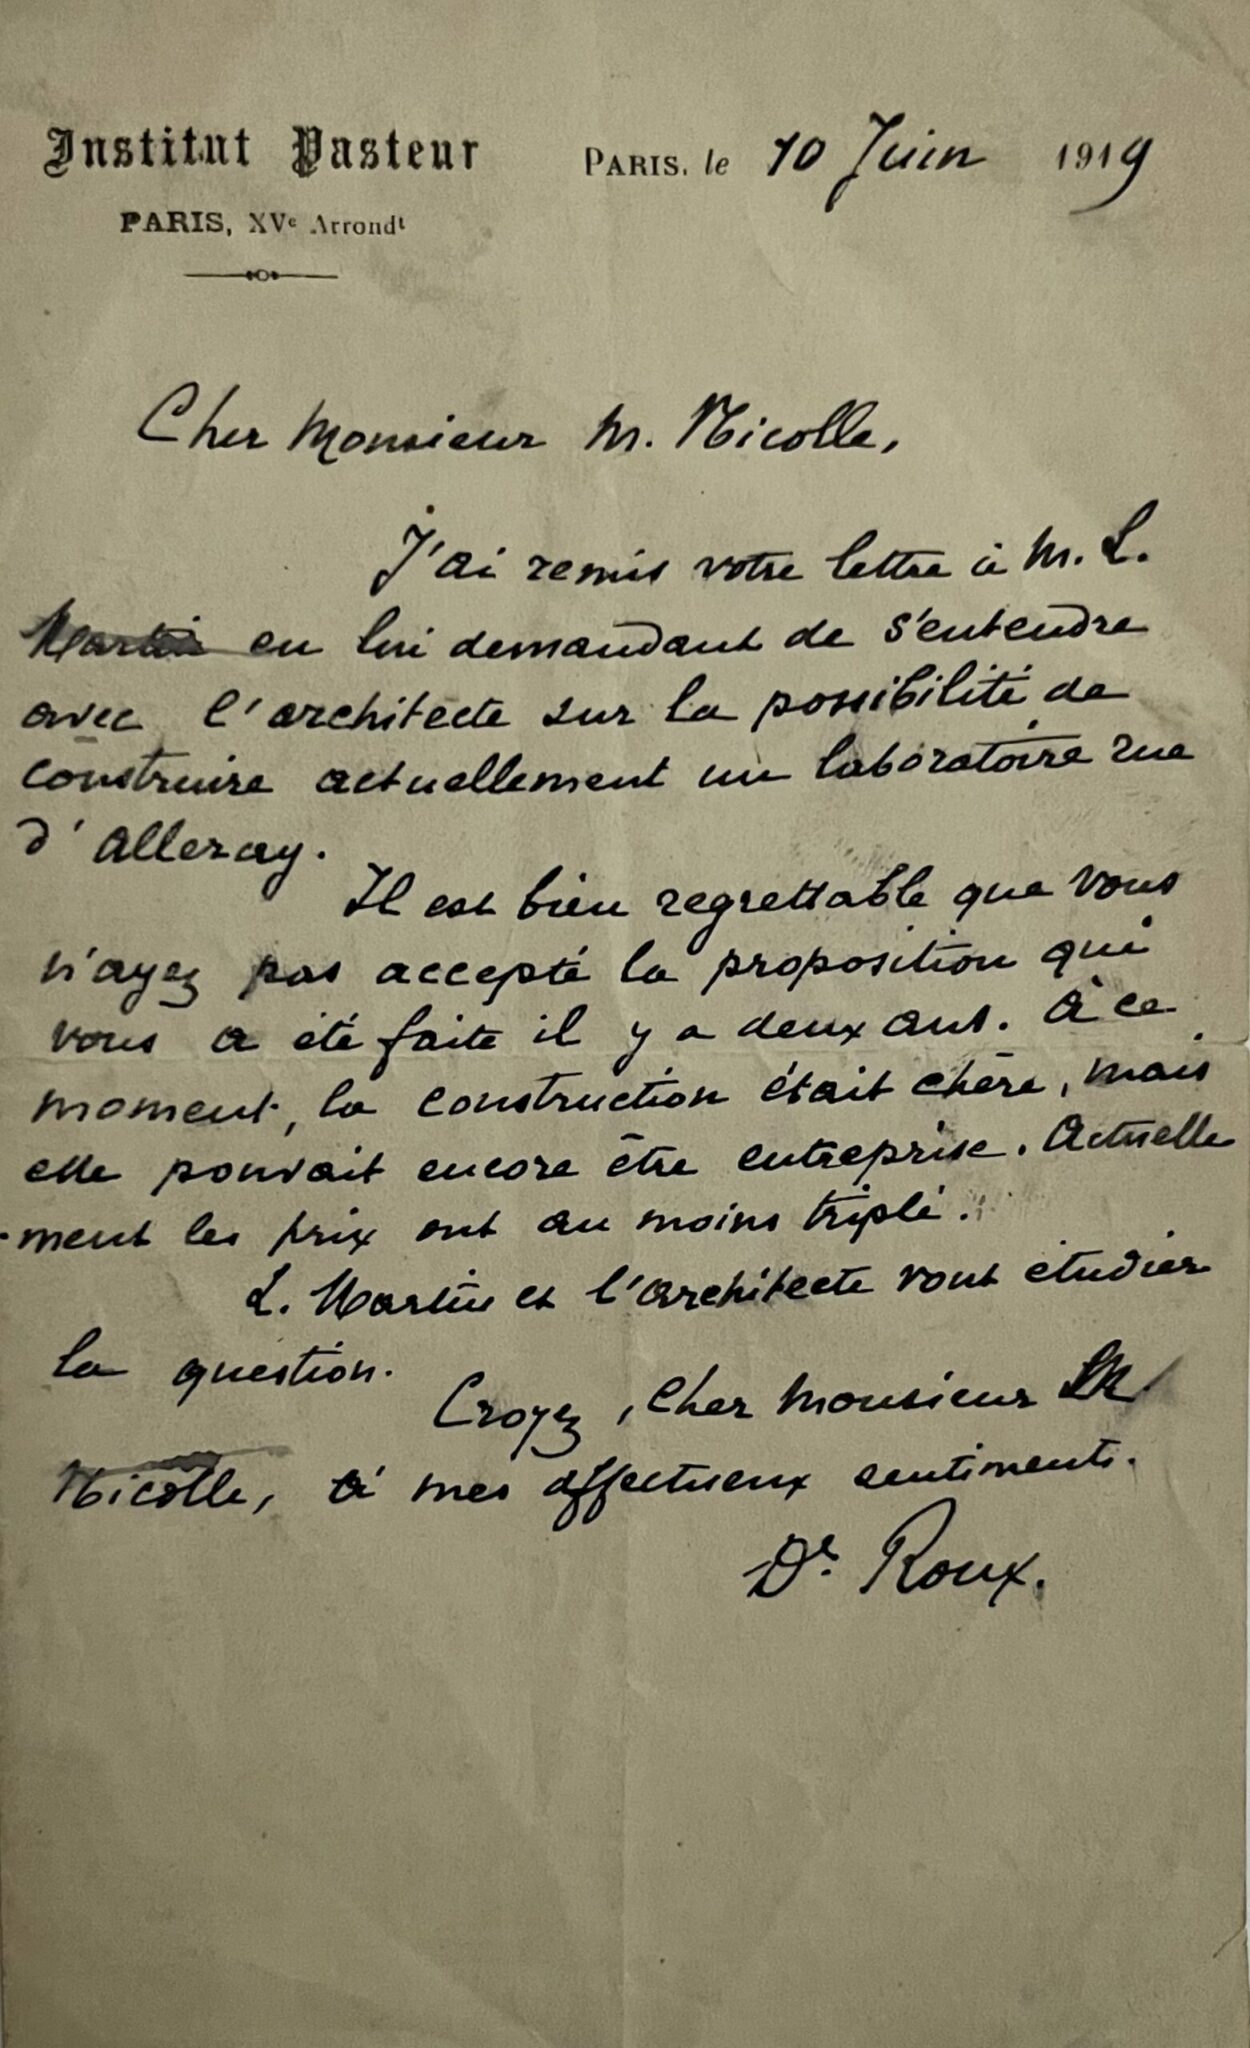 Institut Pasteur
PARIS, XVe Arrondt
PARIS, le 10 Juin 1919
Cher Monsieur M. Nicolle,
J'ai remis votre lettre à M. L.
Martin en lui demandant de s'entendre
avec l'architecte sur la possibilité de
construire actuellement un laboratoire rue
d'Alleray.
Il est bien regrettable que vous
n'ayez pas accepté la proposition qui
vous a été faite il y a deux ans. À ce
moment, la construction était chère, mais
elle pouvait encore être entreprise. Actuelle
-ment les prix ont au moins triplé.
L. Martin et l'architecte vont étudier
la question.
Croyez, Cher Monsieur M.
Nicolle, à mes affectueux sentiments.
Dr. Roux.